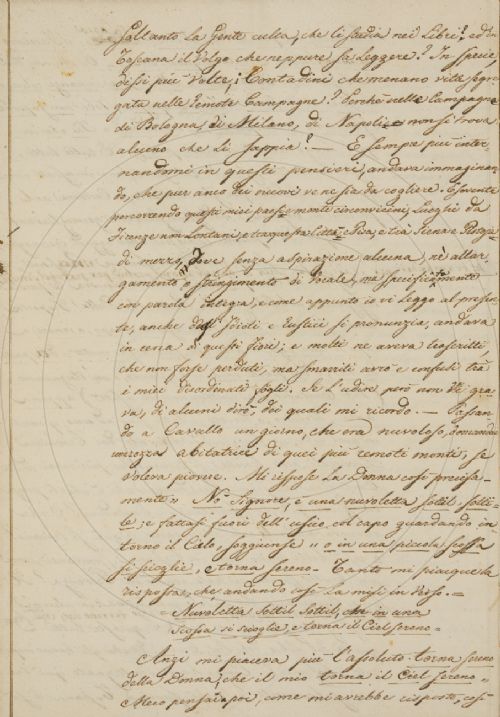 soltanto la Gente culta, che li studia nei Libri? ed in
Toscana il Volgo che neppure sà Leggere? In specie
dissi più Volte, i Contadini che menano vita segre-
gata nelle remote Campagne? Perchè nelle Campagne
di Bologna, di Milano, di Napoli non si trova
alcuno che li sappia? — E sempre più inter-
nandomi in questi pensieri, andava immaginan-
do, che pur anco dei nuovi ve ne sia da cogliere. E sovente
percorrendo questi miei paesi e monti circonvicini, Luoghi da
Firenze non Lontani, e tra questa Città e Pisa, e trà Siena e
di mezzo, ove senza aspirazione alcuna, nè allar-
gamento o stringimento di Vocale, ma specificatamente
con parola integra, e come appunto io vi Leggo al presen-
te, anche dagl' Idioti e Rustici si pronunzia, andava
in cerca di questi fiori; e molti ne aveva trascritti,
che non forse perduti, ma smarriti avrò e confusi trà
i miei disordinati fogli. Se L'udire però non Vi gra-
va, di alcuni dirò, dei quali mi ricordo. — Passan-
do a Cavallo un giorno, che era nuvoloso, domandai
una rozza abitatrice di quei più remoti monti, se
voleva piovere. Mi rispose La Donna così precisa-
mente " Nò Signore, è una nuvoletta sottil sotti-
le; e fattasi fuori dell' uscio, col capo guardando in-
torno il Cielo, soggiunse " o in una piccola scossa
si scioglie, e torna sereno — Tanto mi piacque la
risposta, che andando così La misi in Verso. =
= Nuvoletta Sottil Sottil, che in una
Scossa si scioglie e torna il Ciel sereno =
Anzi mi piaceva più L'assoluto torna sereno
della Donna, che il mio torna il Ciel sereno =
Meco pensai poi, come mi avrebbe risposto, così